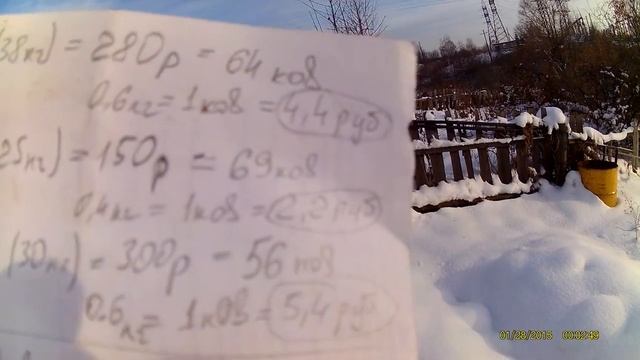 (38кг) = 280р = 64 ков
0,6кг = 1ков = 4,4руб
25кг) = 150р = 69ков
0,4кг = 1ков = 2,2руб
(30кг) = 300р = 56 ков
0.6кг = 1ков = 5,4руб
01/28/2015 00:02:49